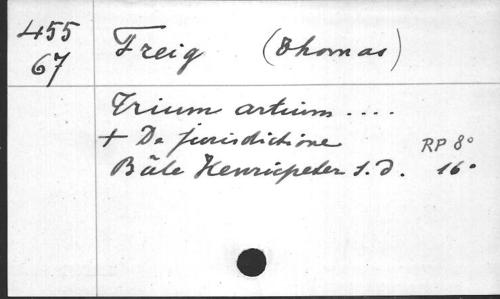 455
67
Freig (Thomas)
Trium artium ....
+ De jurisdictione
Bâle Henricpeter s.d.
RP 8°
16°